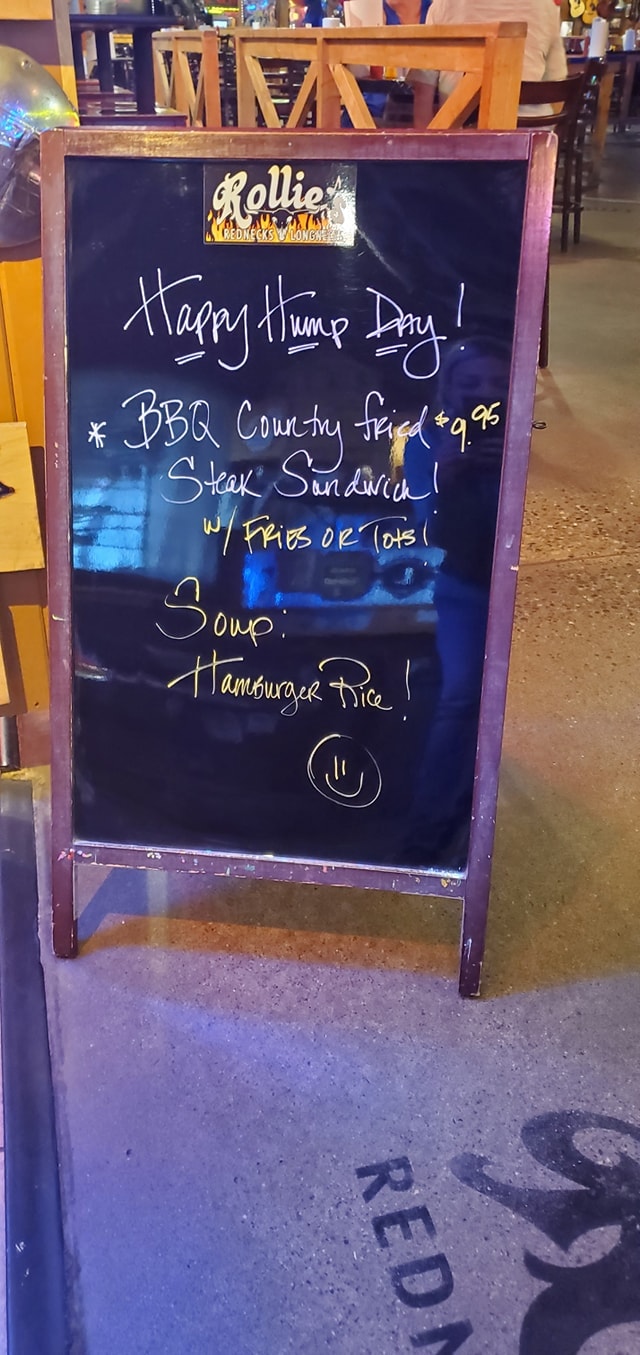 Rollie's
REDNECKS LONGNECKS
Happy Hump Day!
* BBQ Country fried $9.95
Steak Sandwich!
W/ FRIES OR Tots!
Soup:
HAMBURGER Rice!
REDN